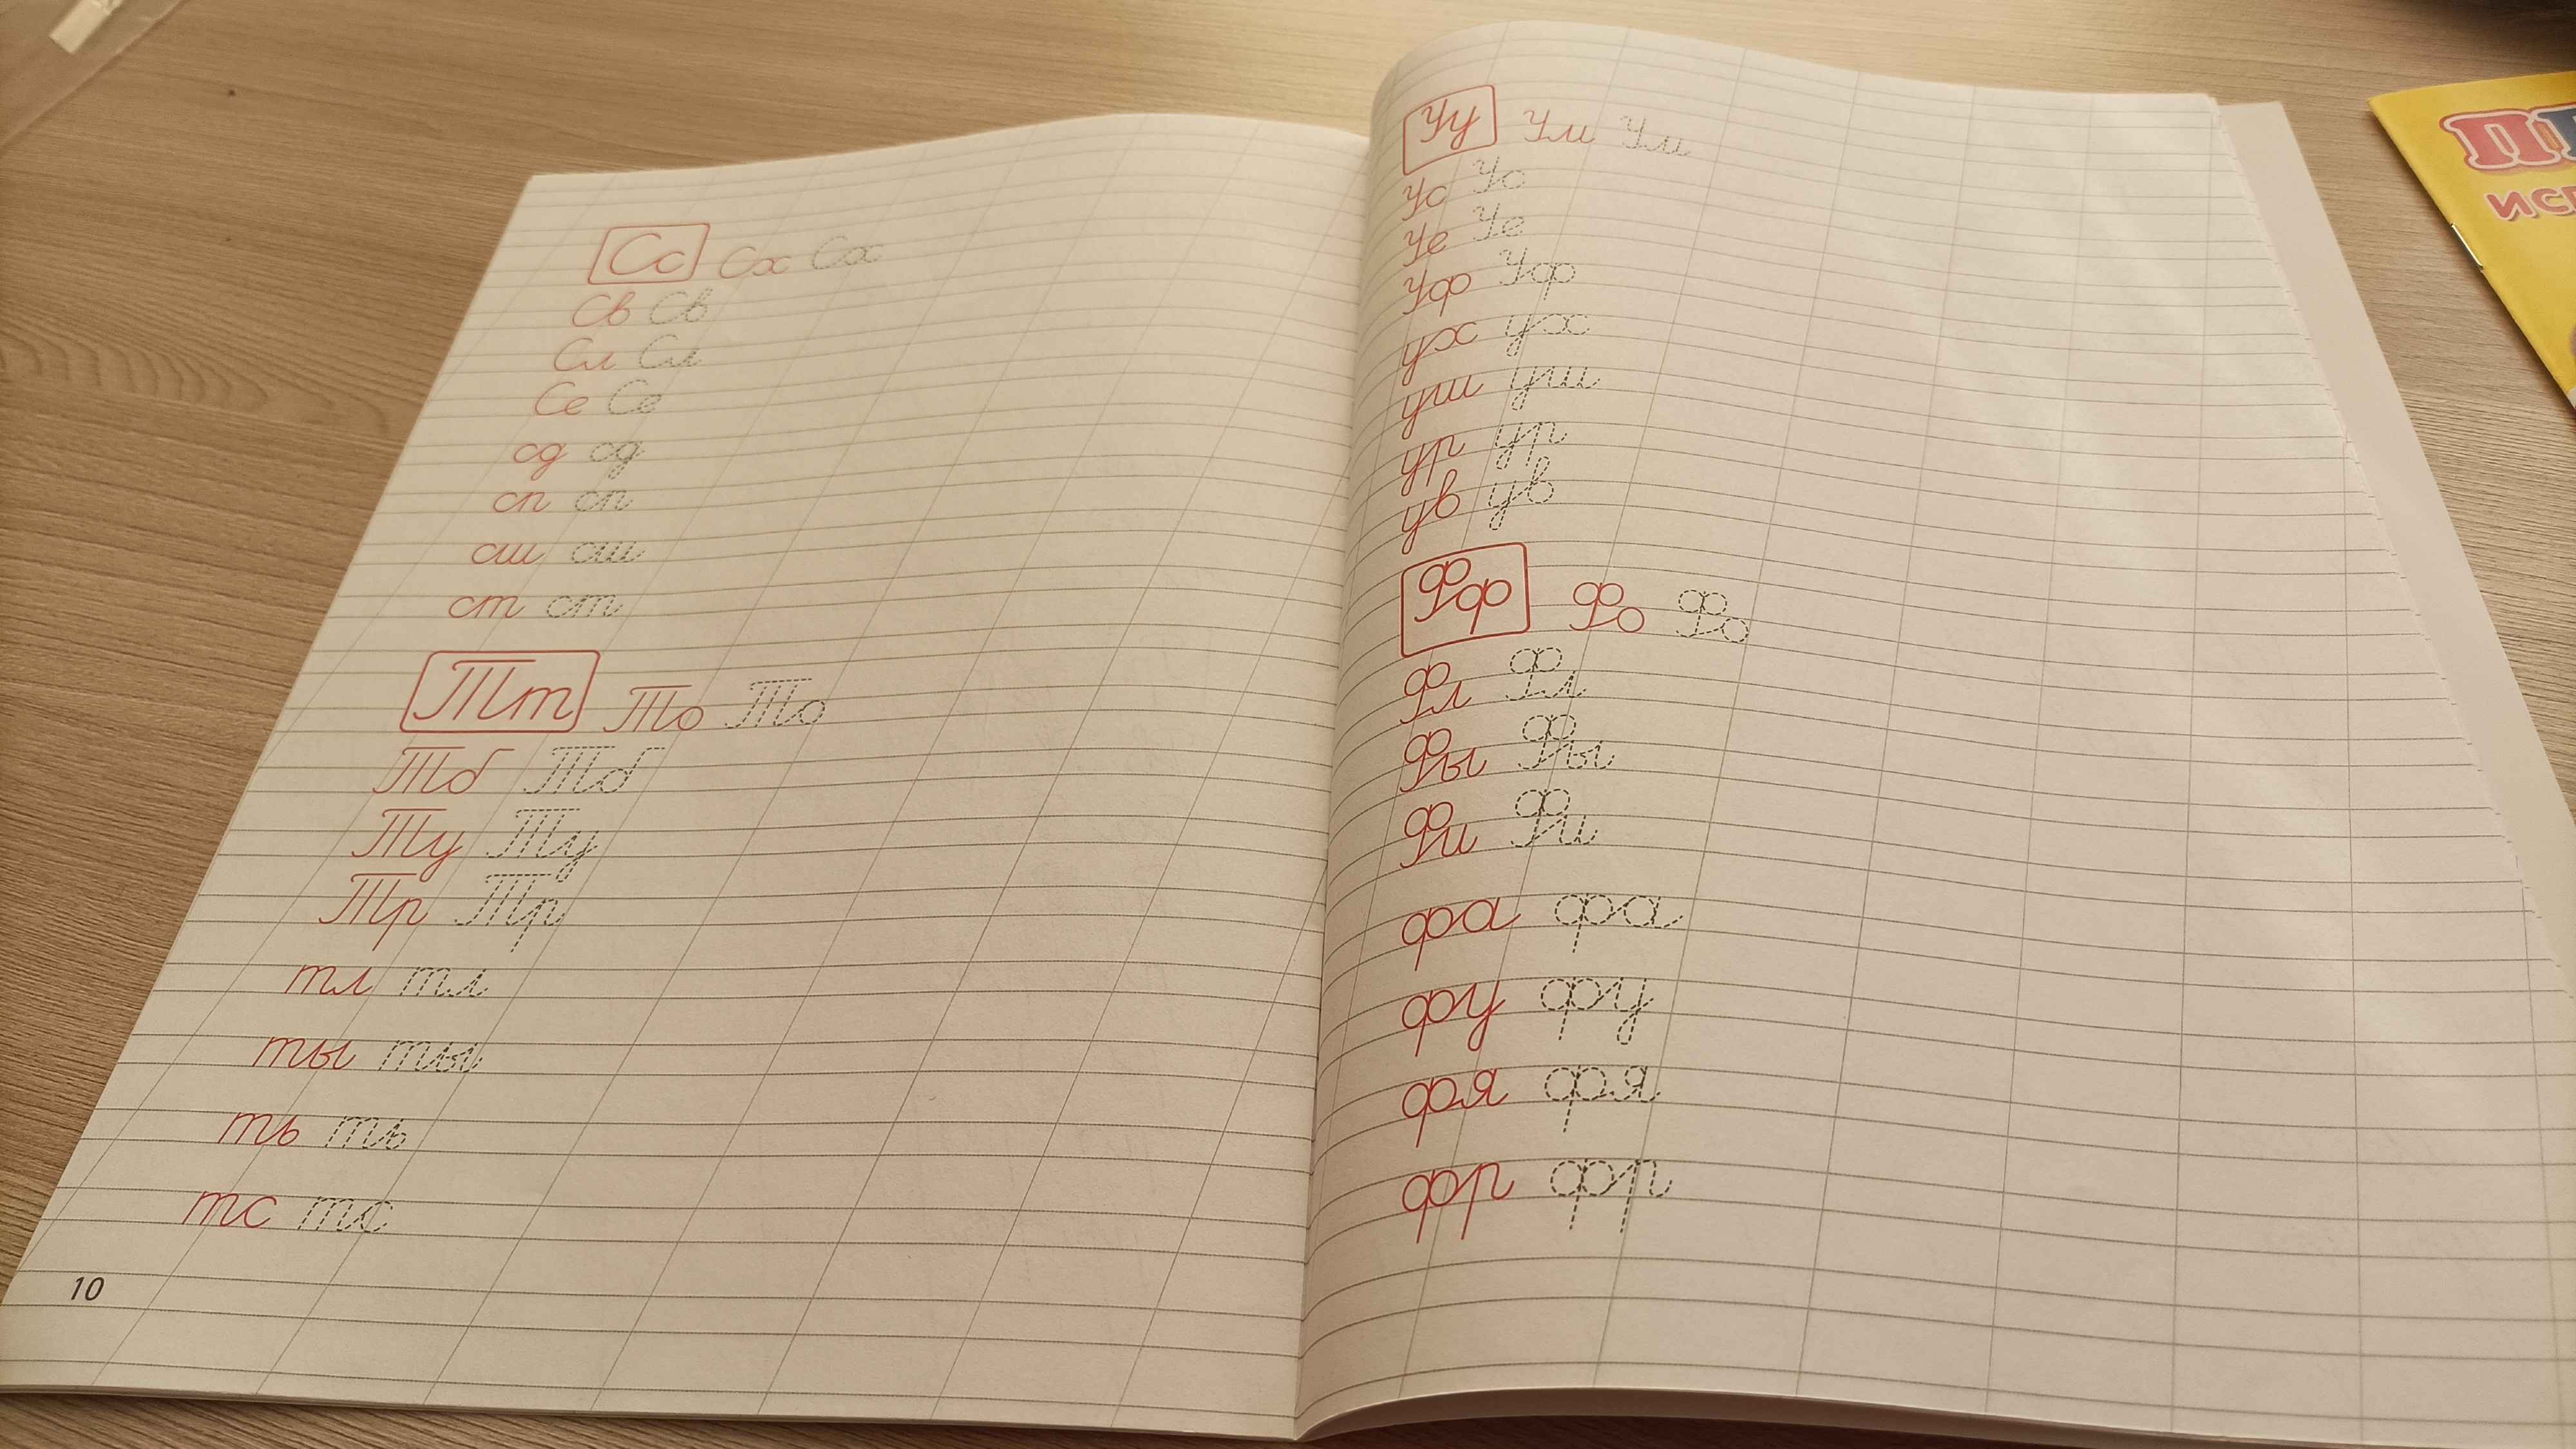 Сс Сх Сх
Св Св
Сл Сл
Се Се
сд сд
сп сп
сш сш
ст ст
Тт То То
Тб Тб
Ту Ту
Тр Тр
тл тл
ты ты
ть ть
тс тс
10
Уу Ум Ум
Ус Ус
Уе Уе
Уф Уф
ух ух
уш уш
ур ур
ув ув
Фф Фо Фо
Фл Фл
Фы Фы
Фи Фи
фа фа
фу фу
фя фя
фр фр